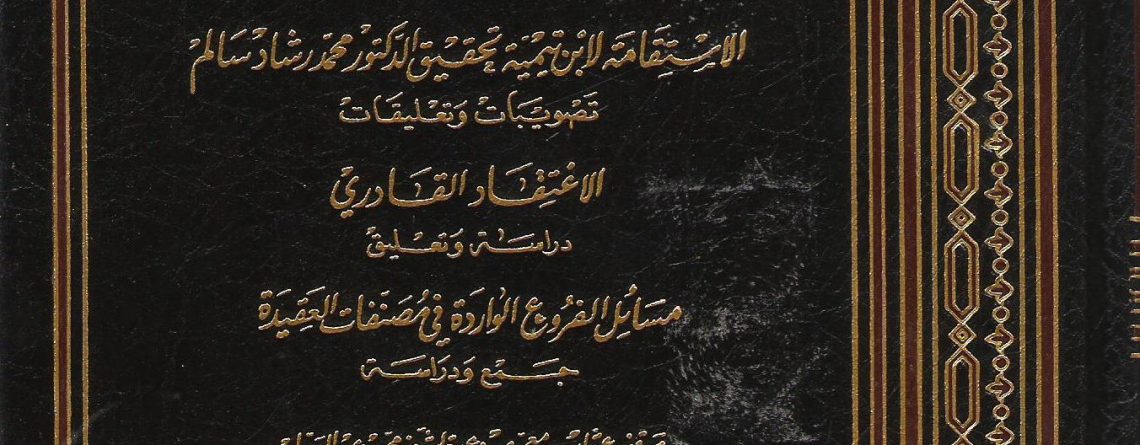 الاسْتِقَامَة لابْن تيميَّة تحقيق الدكتور محمّد رشاد سَالم
تَصْويبَات وَتَعْليقَات
الاعْتِقَاد القَادري
دراسَة وَتَعْليق
مَسَائل الفرُوع الوَاردَة في مُصَنّفات العَقِيدَة
جَمْع وَدرَاسَة